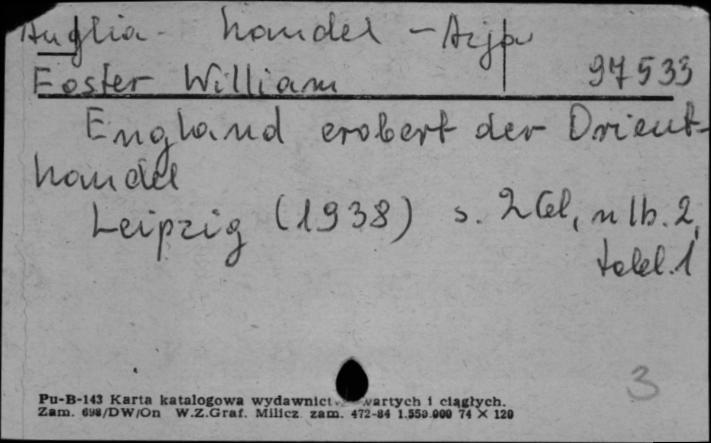 Anglia - handel - Azja
Foster William 97533
England erobert der Orient-
handel
Leipzig (1938) s. 261, ilb. 2,
tabl. 1
3
Pu-B-143 Karta katalogowa wydawnict wartych i ciągłych.
Zam. 698/DW/On W.Z.Graf. Milicz zam. 472-84 1.559.000 74 × 120